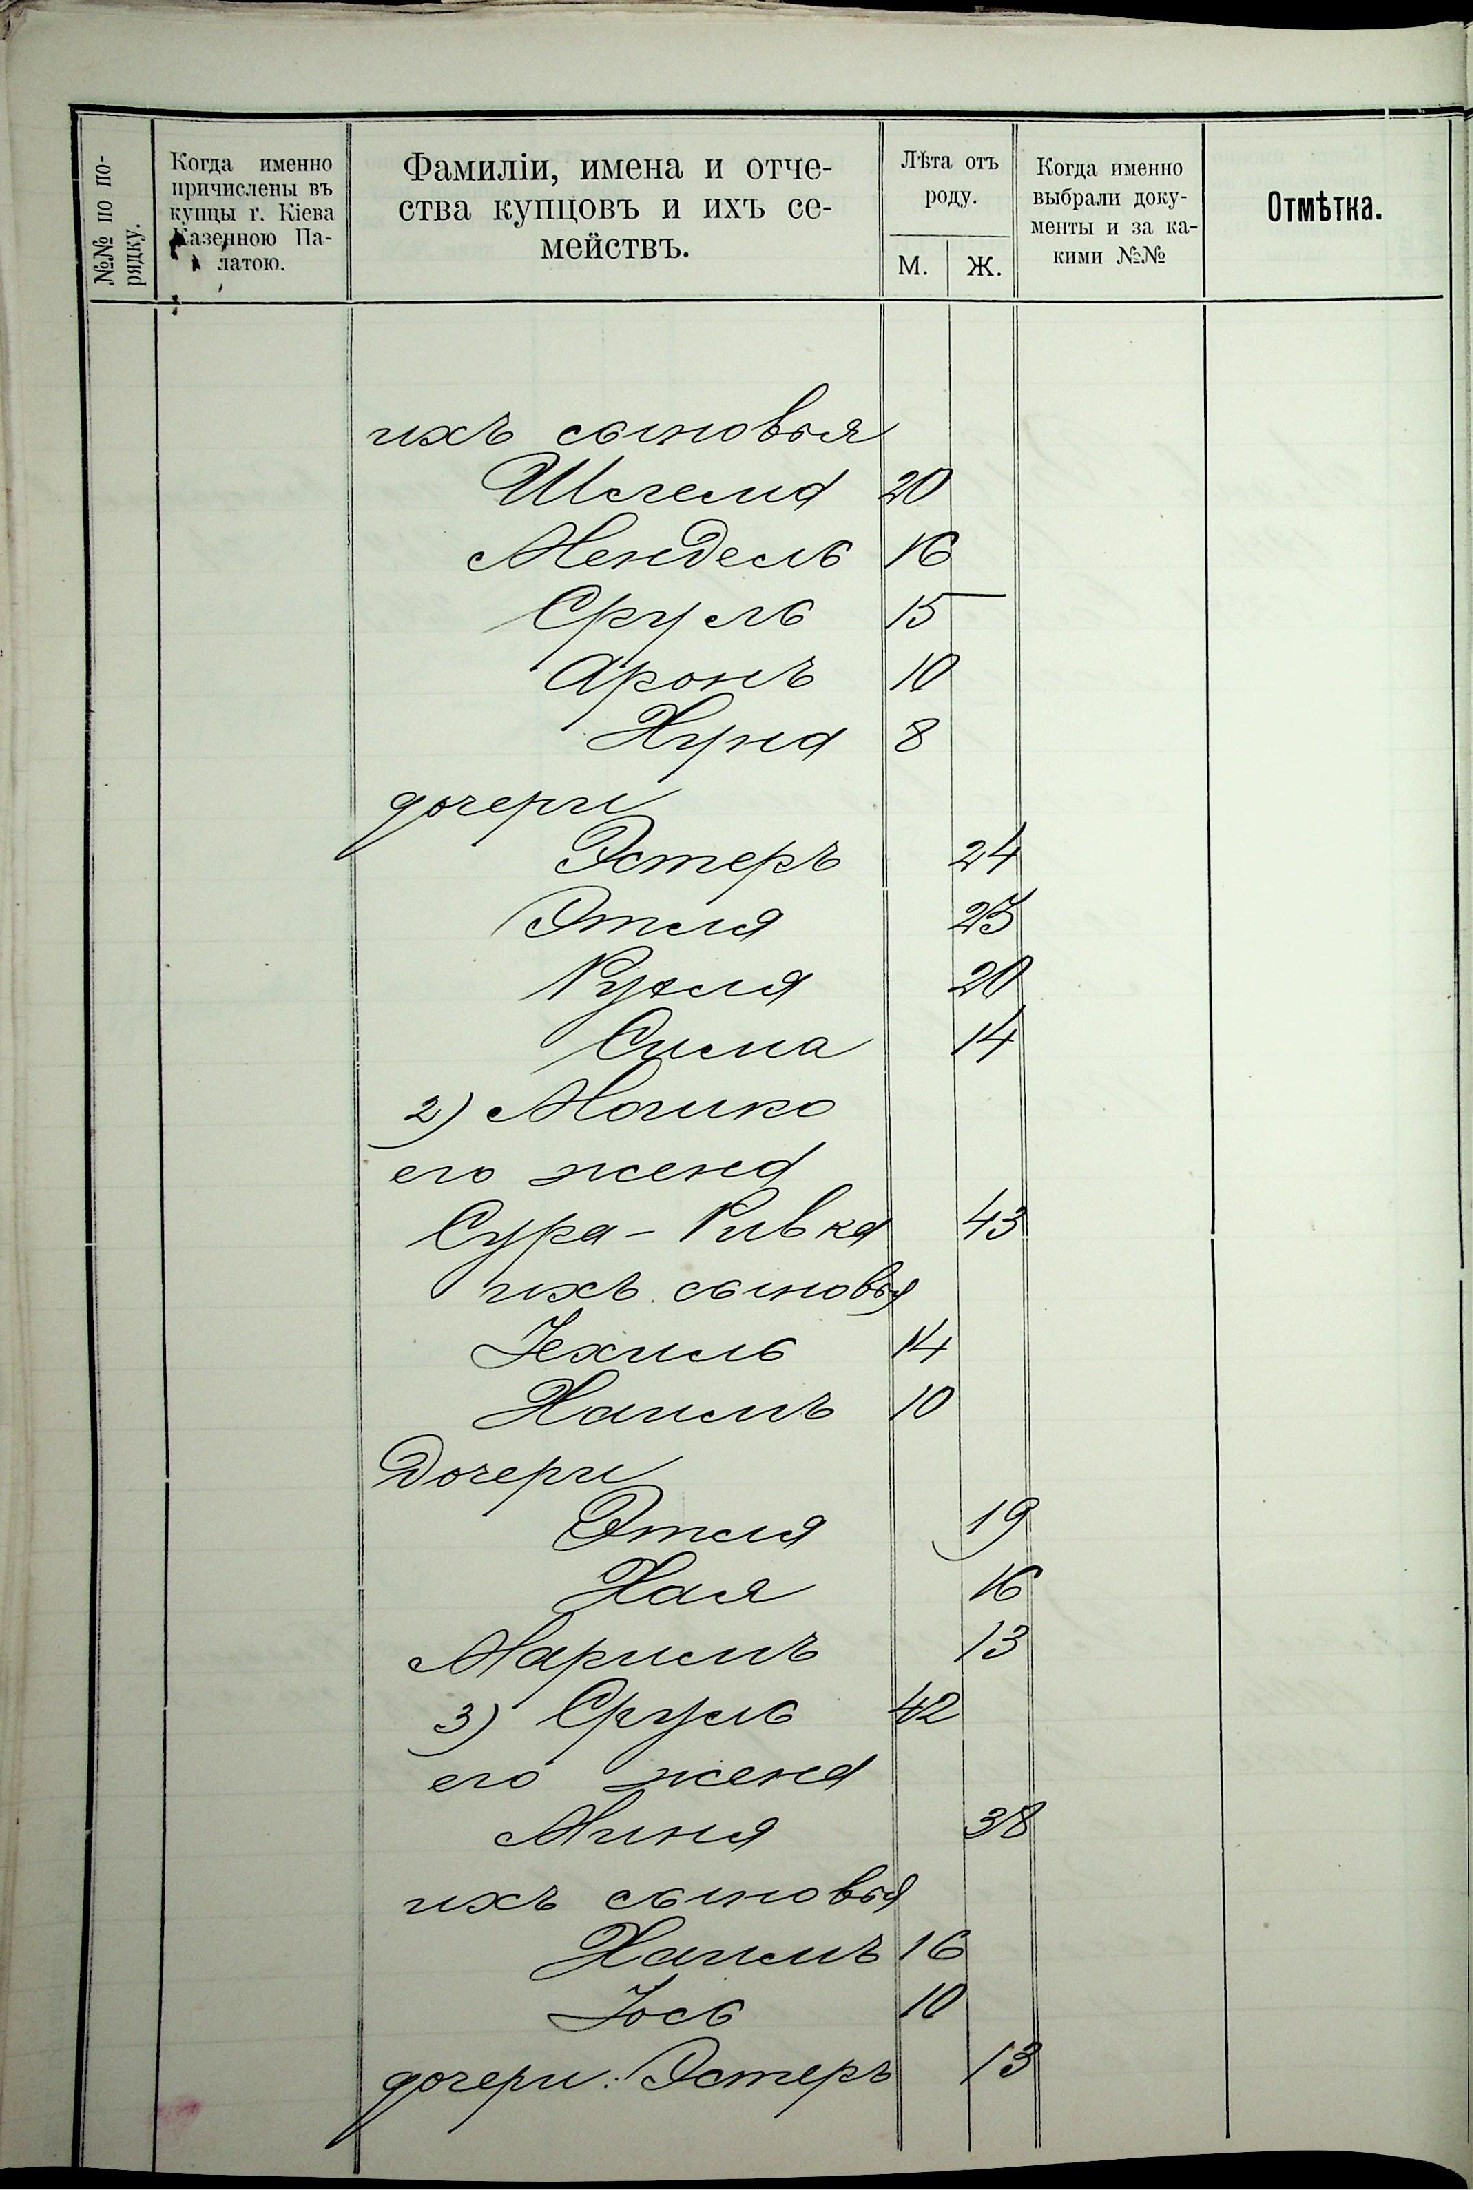 №№ по по-
рядку.
Когда именно
причислены въ
купцы г. Кіева
Казенною Па-
латою.
Фамиліи, имена и отче-
ства купцовъ и ихъ се-
мействъ.
Лѣта отъ
роду.
М. Ж.
Когда именно
выбрали доку-
менты и за ка-
кими №№
Отмѣтка.
ихъ сыновья
Шлема 20
Мендель 16
Сруль 15
Аронъ 10
Хуна 8
дочери
Эстеръ 24
Этля 23
Рухля 20
Сима 14
2) Мошко
его жена
Сура-Ривка 43
ихъ сыновья
Іехиль 14
Хаимъ 10
Дочери
Этля 19
Хая 16
Маримъ 13
3) Сруль 42
его жена
Миня 38
ихъ сыновья
Хаимъ 16
Іось 10
дочери: Эстеръ 13